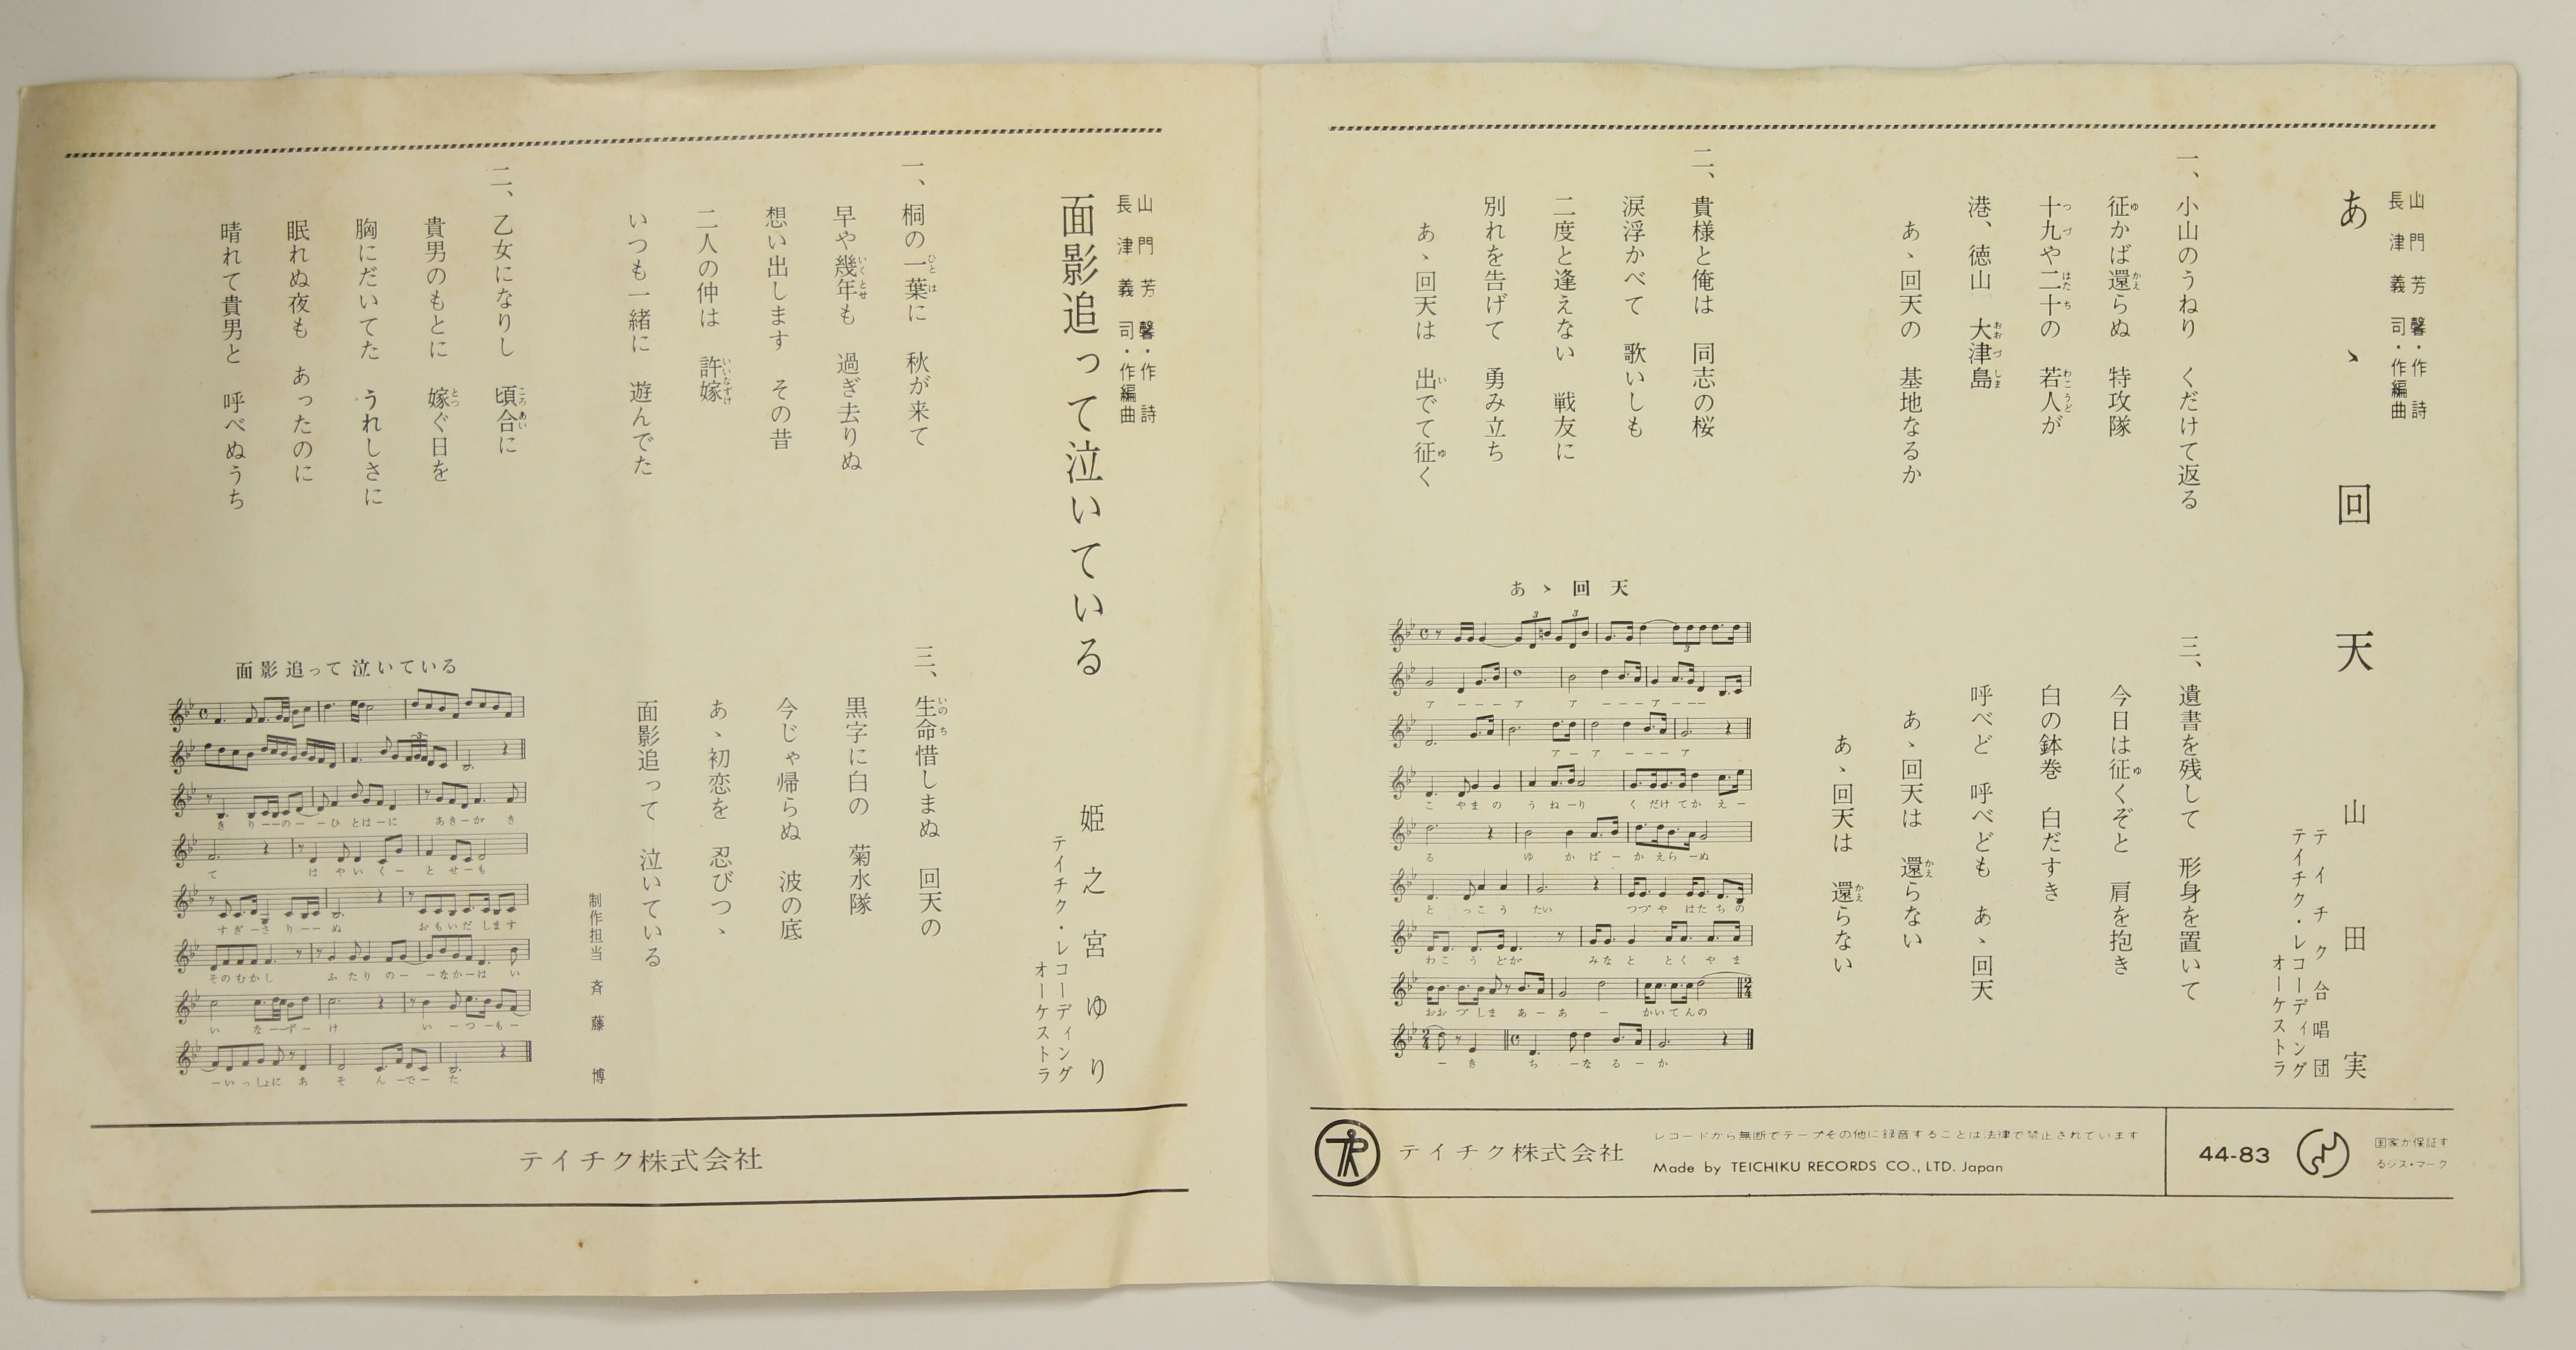 山門芳馨・作詩
長津義司・作編曲
あゝ回天
山田実
テイチク合唱団
テイチク・レコーディング
オーケストラ
一、小山のうねり　くだけて返る
征かば還らぬ　特攻隊
十九や二十の　若人が
港、徳山　大津島
あゝ回天の　基地なるか
二、貴様と俺は　同志の桜
涙浮かべて　歌いしも
二度と逢えない　戦友に
別れを告げて　勇み立ち
あゝ回天は　出でて征く
三、遺書を残して　形身を置いて
今日は征くぞと　肩を抱き
白の鉢巻　白だすき
呼べど　呼べども　あゝ回天
あゝ回天は　還らない
あゝ回天は　還らない
あゝ回天
アーーーア　アーーーアーーー
アーアーーーア
こ やまの うねーり くだけてかえー
る ゆ かばーかえらーぬ
と っこう たい つづや はたちの
わこ うどが みなと とくやま
おおづしま あーあー かいてんの
ーき ちーなるーか
テイチク株式会社
レコードから無断でテープその他に録音することは法律で禁止されています
Made by TEICHIKU RECORDS CO., LTD. Japan
44-83
国家が保証す
るジス・マーク
山門芳馨・作詩
長津義司・作編曲
面影追って泣いている
姫之宮ゆり
テイチク・レコーディング
オーケストラ
一、桐の一葉に　秋が来て
早や幾年も　過ぎ去りぬ
想い出します　その昔
二人の仲は　許嫁
いつも一緒に　遊んでた
二、乙女になりし　頃合に
貴男のもとに　嫁ぐ日を
胸にだいてた　うれしさに
眠れぬ夜も　あったのに
晴れて貴男と　呼べぬうち
三、生命惜しまぬ　回天の
黒字に白の　菊水隊
今じゃ帰らぬ　波の底
あゝ初恋を　忍びつゝ
面影追って　泣いている
制作担当　斉藤　博
面影追って泣いている
き りーーのーーひとはーに あきーが き
て は やいくーとせーも
すぎーさ りーーぬ おもいだします
そのむかし ふたりのーーなかーは い
いなーずーけ いーつーもー
ーいっしょに あそんーでーた
テイチク株式会社